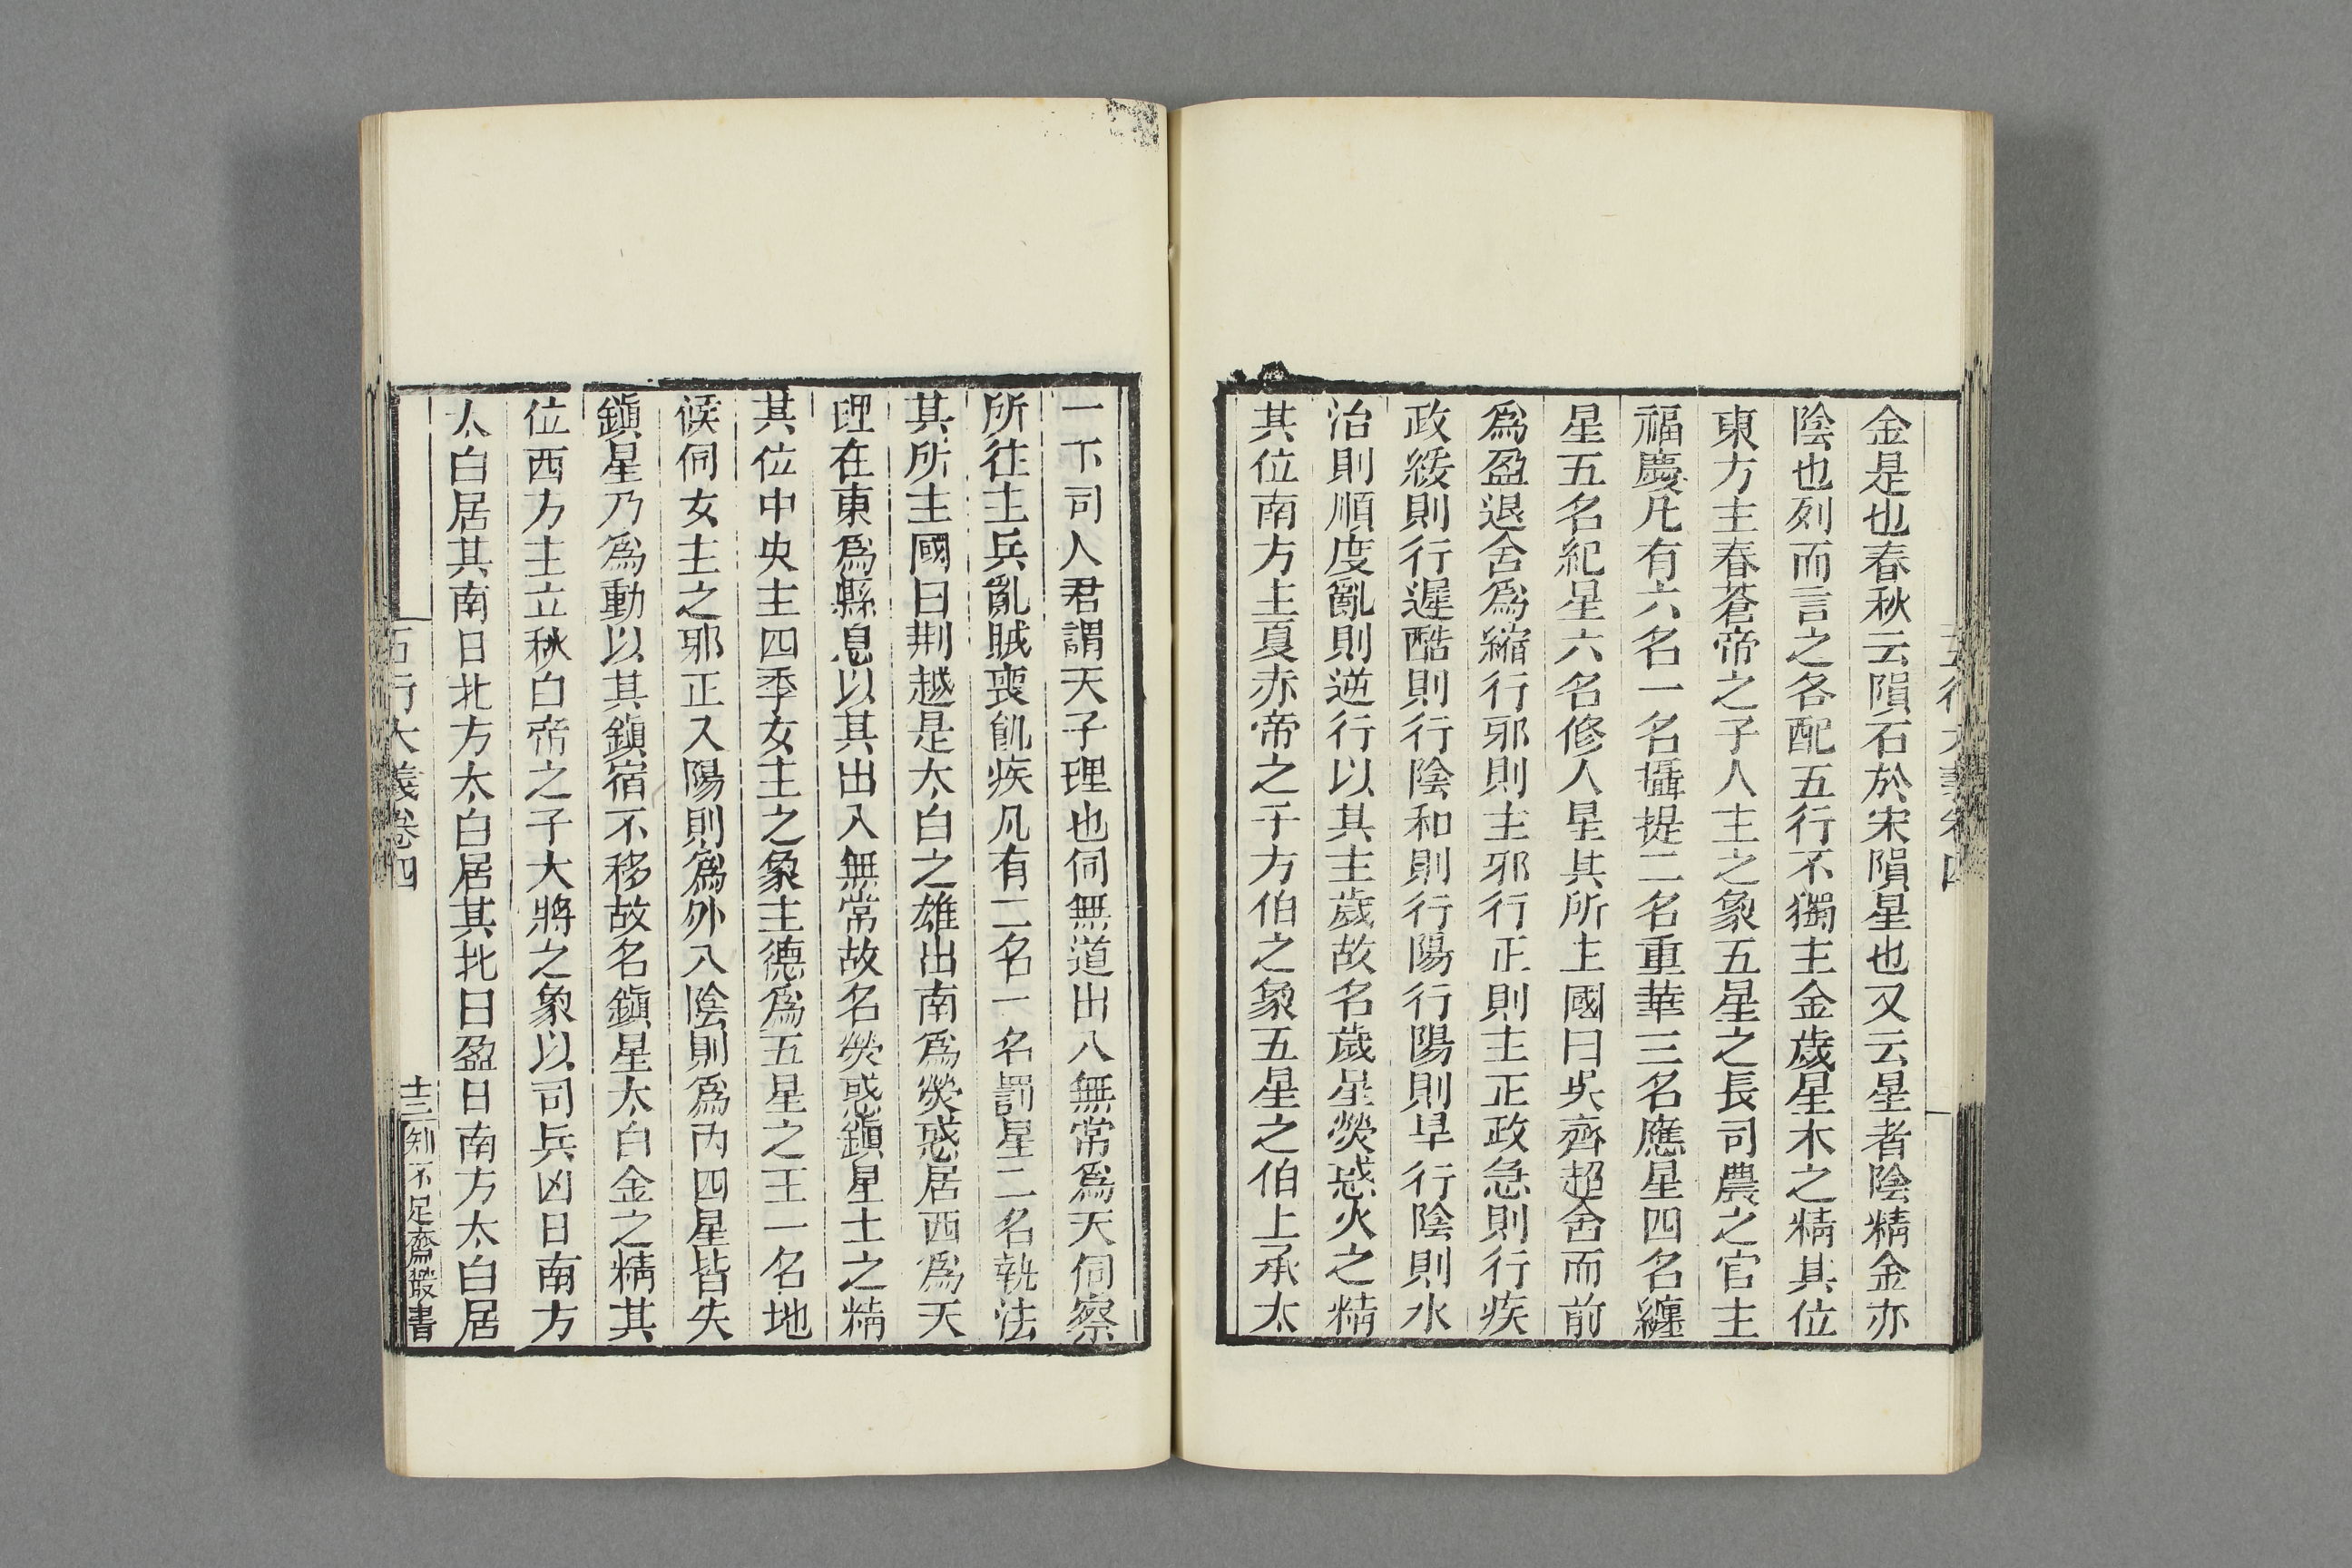 金是也春秋云隕石於宋隕星也又云星者陰精金亦
陰也列而言之各配五行不獨主金歲星木之精其位
東方主春蒼帝之子人主之象五星之長司農之官主
福慶凡有六名一名攝提二名重華三名應星四名纏
星五名紀星六名修人星其所主國曰吳齊超舍而前
爲盈退舍爲縮行邪則主邪行正則主正政急則行疾
政緩則行遲酷則行陰和則行陽行陽則旱行陰則水
治則順度亂則逆行以其主歲故名歲星熒惑火之精
其位南方主夏赤帝之子方伯之象五星之伯上承太
一下司人君謂天子理也伺無道出入無常爲天伺察
所往主兵亂賊喪飢疾凡有二名一名罰星二名執法
其所主國曰荆越是太白之雄出南爲熒惑居西爲天
理在東爲縣息以其出入無常故名熒惑鎭星土之精
其位中央主四季女主之象主德爲五星之王一名地
候伺女主之邪正入陽則爲外入陰則爲內四星皆失
鎭星乃爲動以其鎭宿不移故名鎭星太白金之精其
位西方主立秋白帝之子大將之象以司兵凶日南方
太白居其南日北方太白居其北曰盈日南方太白居
五行大義卷四
十三
知不足齋叢書